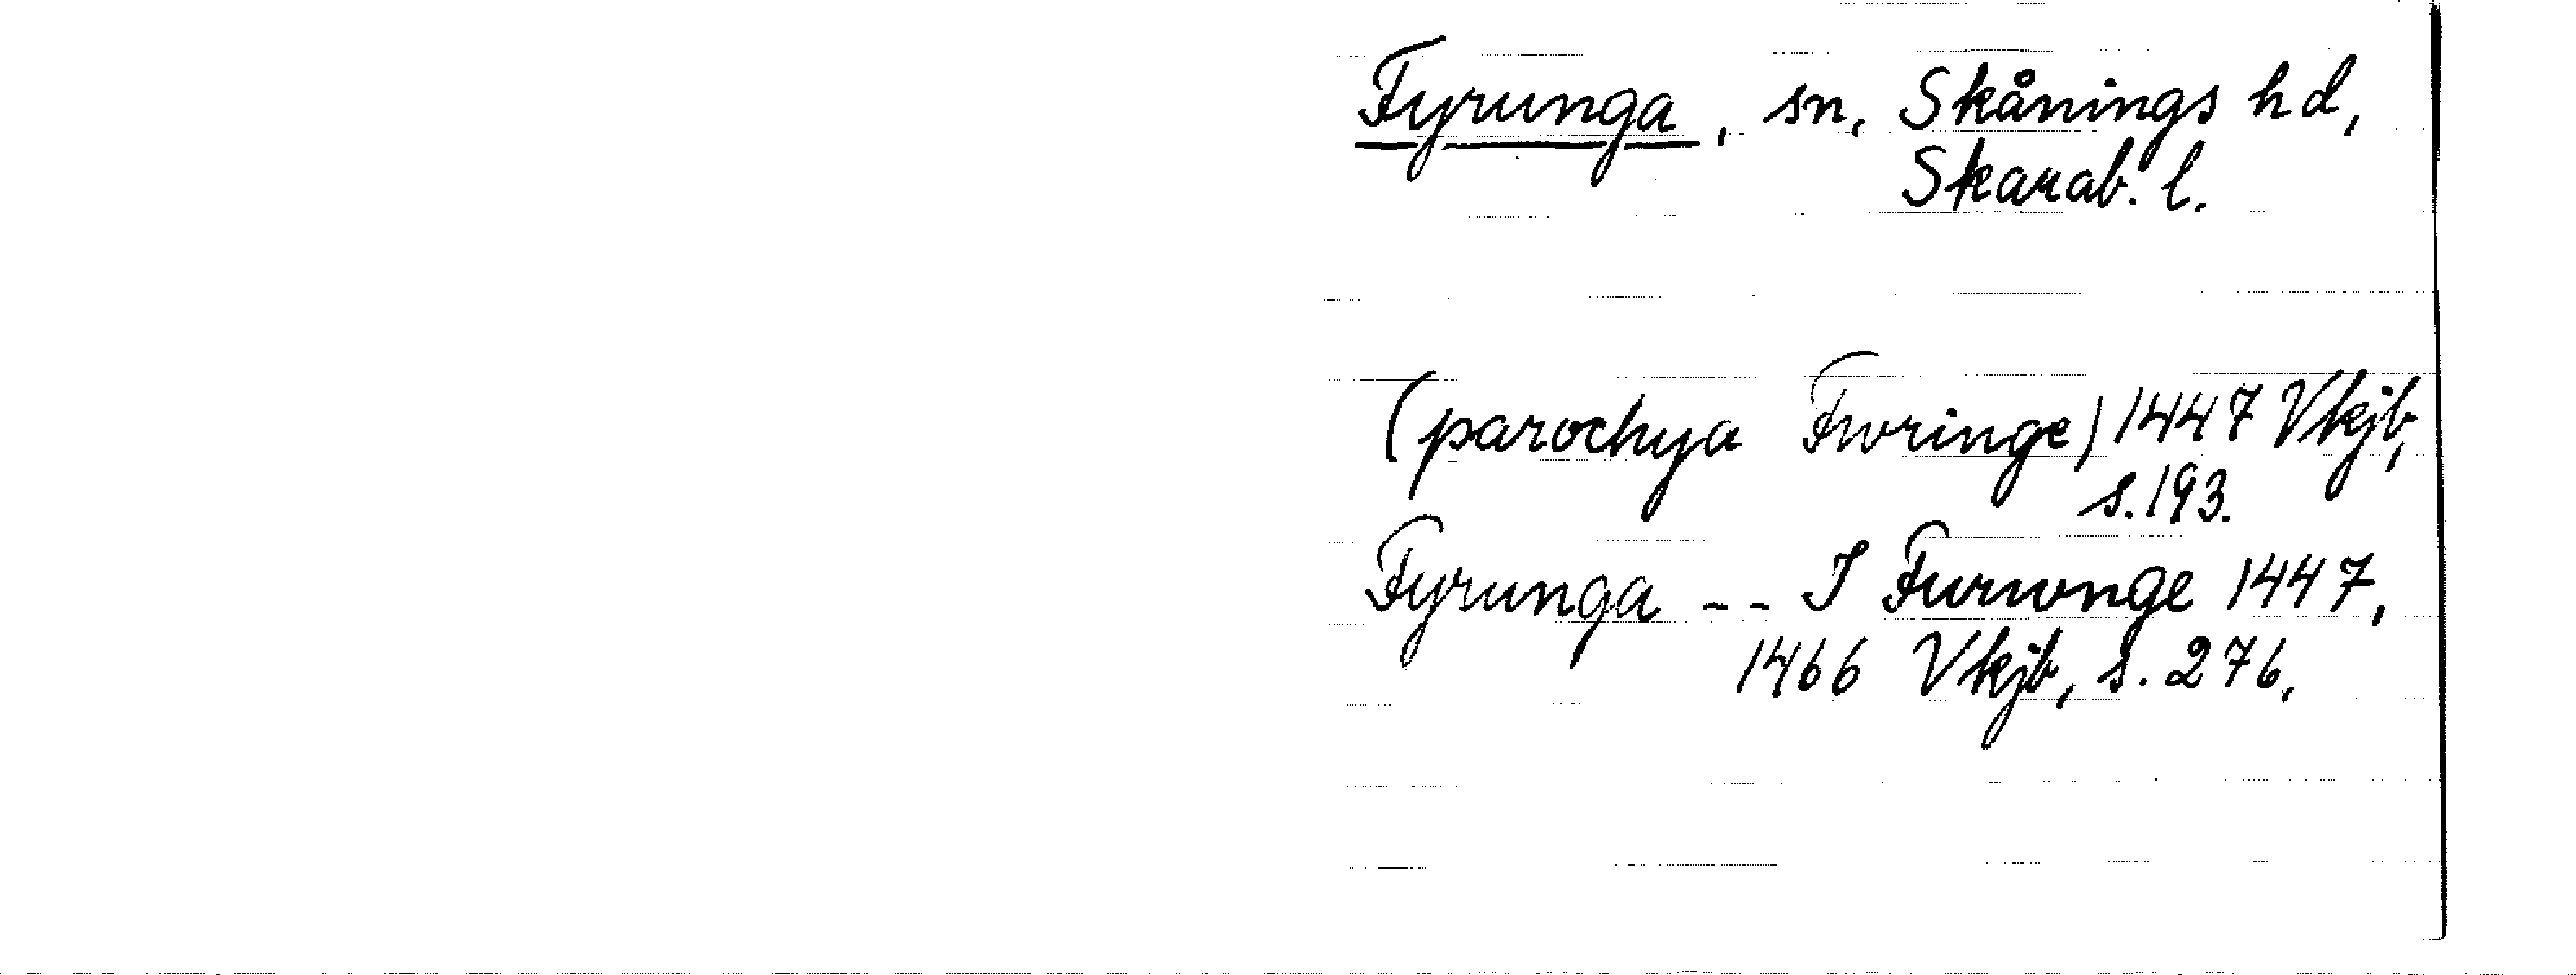 Fyrunga, sn, Skånings hd,
Skarab. l.
(parochya Fwringe) 1447 Vkjb,
s. 193.
Fyrunga -- I Furwnge 1447,
1466 Vkjb, s. 276.